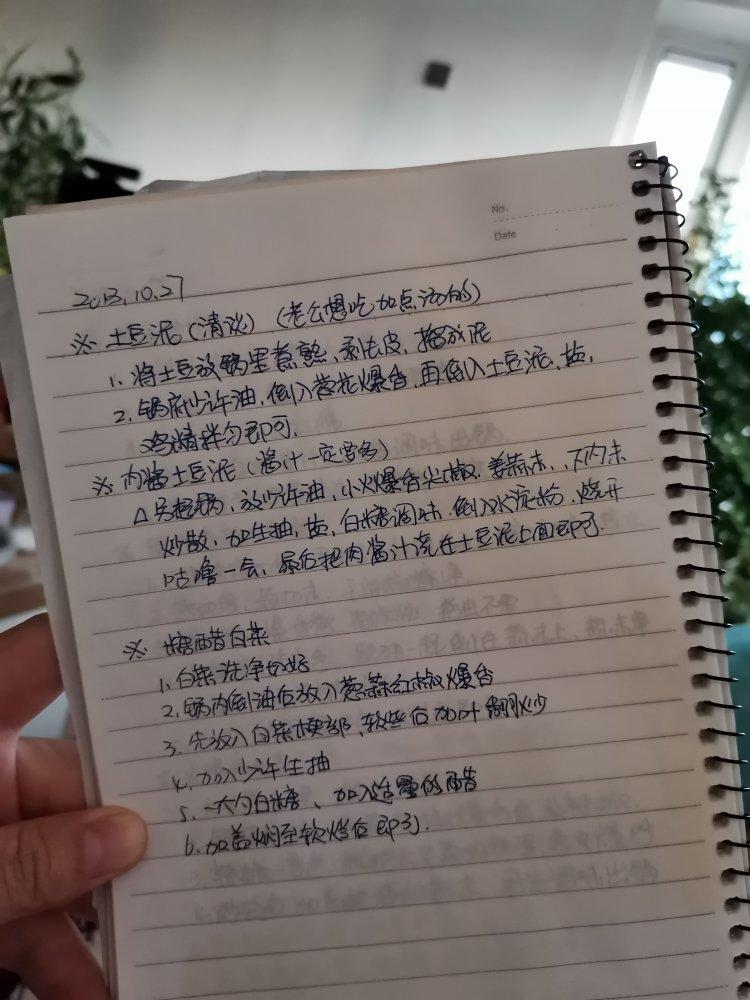 No.
Date
2013.10.27
※ 土豆泥(清淡) (老公想吃 加点汤的)
1. 将土豆放锅里煮熟、剥去皮、捣成泥
2. 锅放少许油,倒入葱花爆香,再倒入土豆泥,盐,
鸡精拌匀即可.
※ 肉酱土豆泥(酱汁一定要多)
△ 另起锅,放少许油,小火爆香尖椒,姜蒜末,下肉末
炒散,加生抽,盐,白糖调味,倒入水淀粉,烧开
咕噜一会,最后把肉酱汁浇在土豆泥上面即可.
※ 糖醋白菜
1. 白菜洗净切好
2. 锅内倒油后放入葱蒜红椒爆香
3. 先放入白菜梗部、软些后加叶翻炒
4. 加入少许生抽
5. 一大勺白糖、加入适量的醋
6. 加盖焖至软烂后即可.